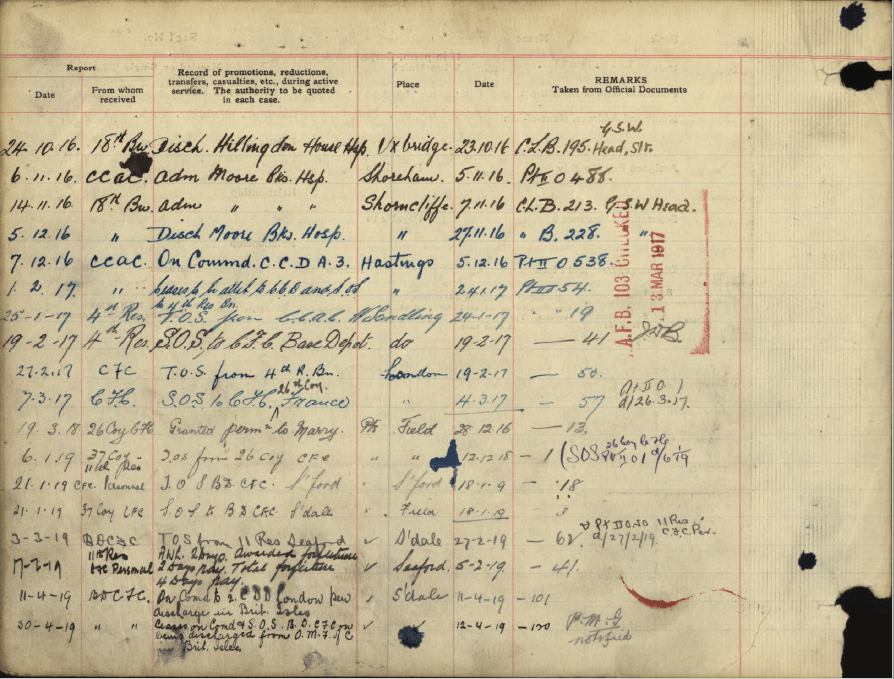 Report
Date
From whom received
Record of promotions, reductions, transfers, casualties, etc., during active service. The authority to be quoted in each case.
Place
Date
REMARKS
Taken from Official Documents
G.S.W.
24.10.16. 18th Bn. Disch. Hillingdon House Hsp. Uxbridge. 23.10.16 C.L.B. 195. Head, Slt.
6.11.16. CCAC. adm Moore Bks. Hsp. Shoreham. 5.11.16. Pt II O 488.
14.11.16. 18th Bn. adm " " " Shorncliffe. 7.11.16 C.L.B. 213. G.S.W Head.
5.12.16 " Disch Moore Bks. Hosp. " 27.11.16 " B. 228. "
7.12.16 CCAC. On Commd. C.C.D A.3. Hastings 5.12.16 Pt II O 538.
1.2.17. " ceases to be attch to C.C.D and S.O.S " 24.1.17 Pt III 54.
to 4th Res Bn.
25-1-17 4th Res. T.O.S. from C.C.A.C. W Sandling 24-1-17 " 19
19-2-17 4th Res. S.O.S, to C.F.C. Base Depot. do 19-2-17 — 41
A.F.B. 103 CHECKED
13 MAR 1917
27.2.17 CFC T.O.S. from 4th R. Bn. London 19-2-17 — 50.
26th Coy.
7.3.17 C.F.C. S.O.S. to C.F.C, France " 4.3.17 — 57 Pt II O 1 d/26.3.17.
19.3.18 26 Coy C.F.C. Granted permn to Marry. Pts Field 28.12.16 — 13.
6.1.19 37 Coy - T.O.S from 26 Coy CFC " " 12.12.18 — 1 (SOS 26 Coy C.F.C Pt II O 1 d/6/1/19
11th Res
21.1.19 CFC Personnel T O S BD CFC. S'ford " S'ford 18-1-9 — "18
21.1.19 37 Coy CFC S.O.S to B D CFC S'dale " Field 18-1-19 3
3-3-19 BDCFC TOS from 11 Res Seaford " S'dale 27-2-19 — 62, Pt II O 50 11 Res d/27/2/19. C.F.C. Per.
11th Res
CFC Personal AWL. 2 Days. Awarded forfeiture
2 Days pay. Total forfeiture " Seaford. 5-2-19 — 41.
4 Days pay.
11-4-19 BDCFC. On Comd to 2 CDD London pen " S'dale 11-4-19 — 101
discharge in Brit. Isles
30-4-19 " " Ceases on Comd & S.O.S. B.D. CFC on " " 12-4-19 — 120 P.M.G
being discharged from O.M.F. of C notified
in Brit. Isles.